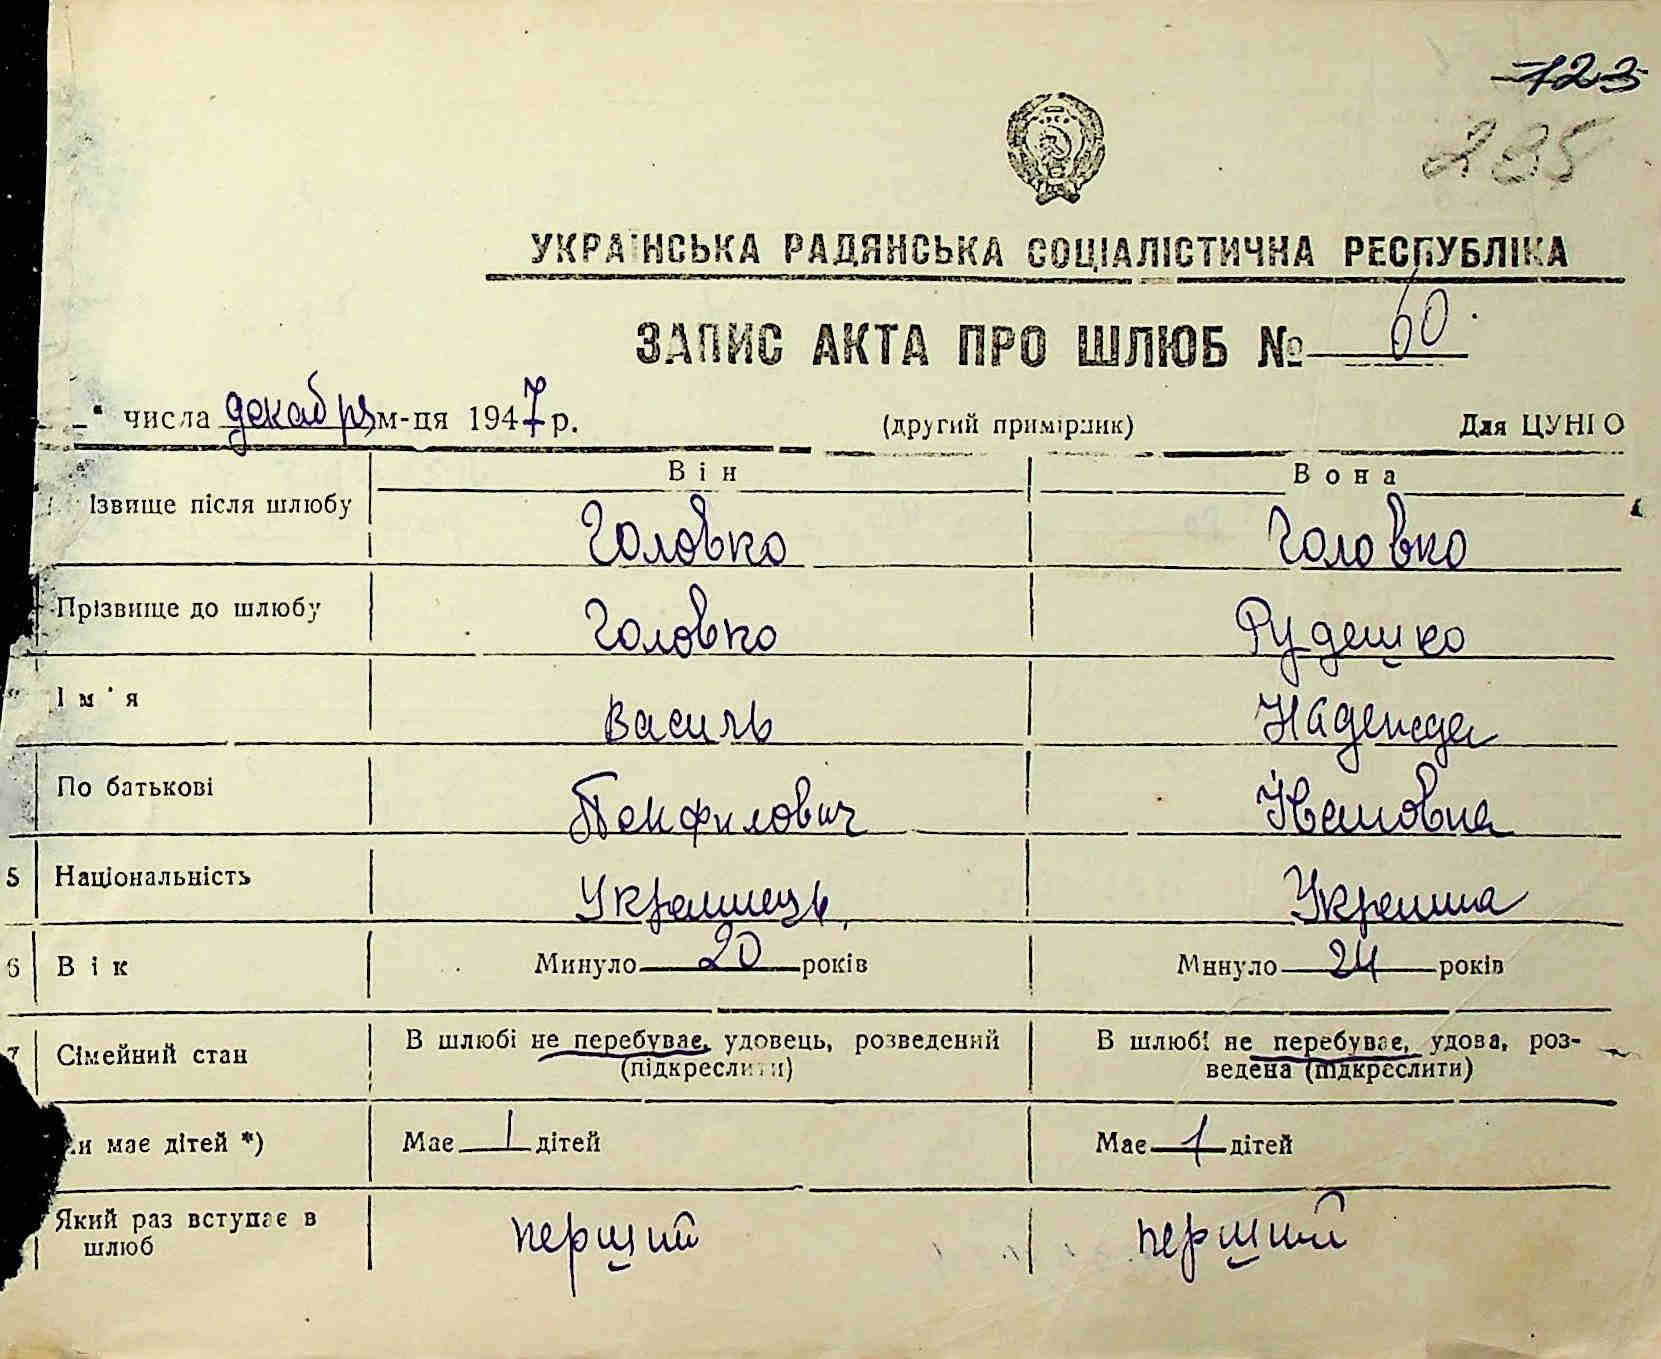 123
285
УКРАЇНСЬКА РАДЯНСЬКА СОЦІАЛІСТИЧНА РЕСПУБЛІКА
ЗАПИС АКТА ПРО ШЛЮБ № 60
" числа декабря м-ця 1947 р. (другий примірник) Для ЦУНГО
Він Вона
ізвище після шлюбу Головко Головко
Прізвище до шлюбу Головко Рудешко
Ім'я Василь Надежда
По батькові Панфилович Ивановна
5 Національність Українець Українка
6 Вік Минуло 20 років Минуло 24 років
7 Сімейний стан В шлюбі не перебуває, удовець, розведений В шлюбі не перебуває, удова, роз-
(підкреслити) ведена (підкреслити)
и має дітей *) Має 1 дітей Має 1 дітей
Який раз вступає в перший перший
шлюб